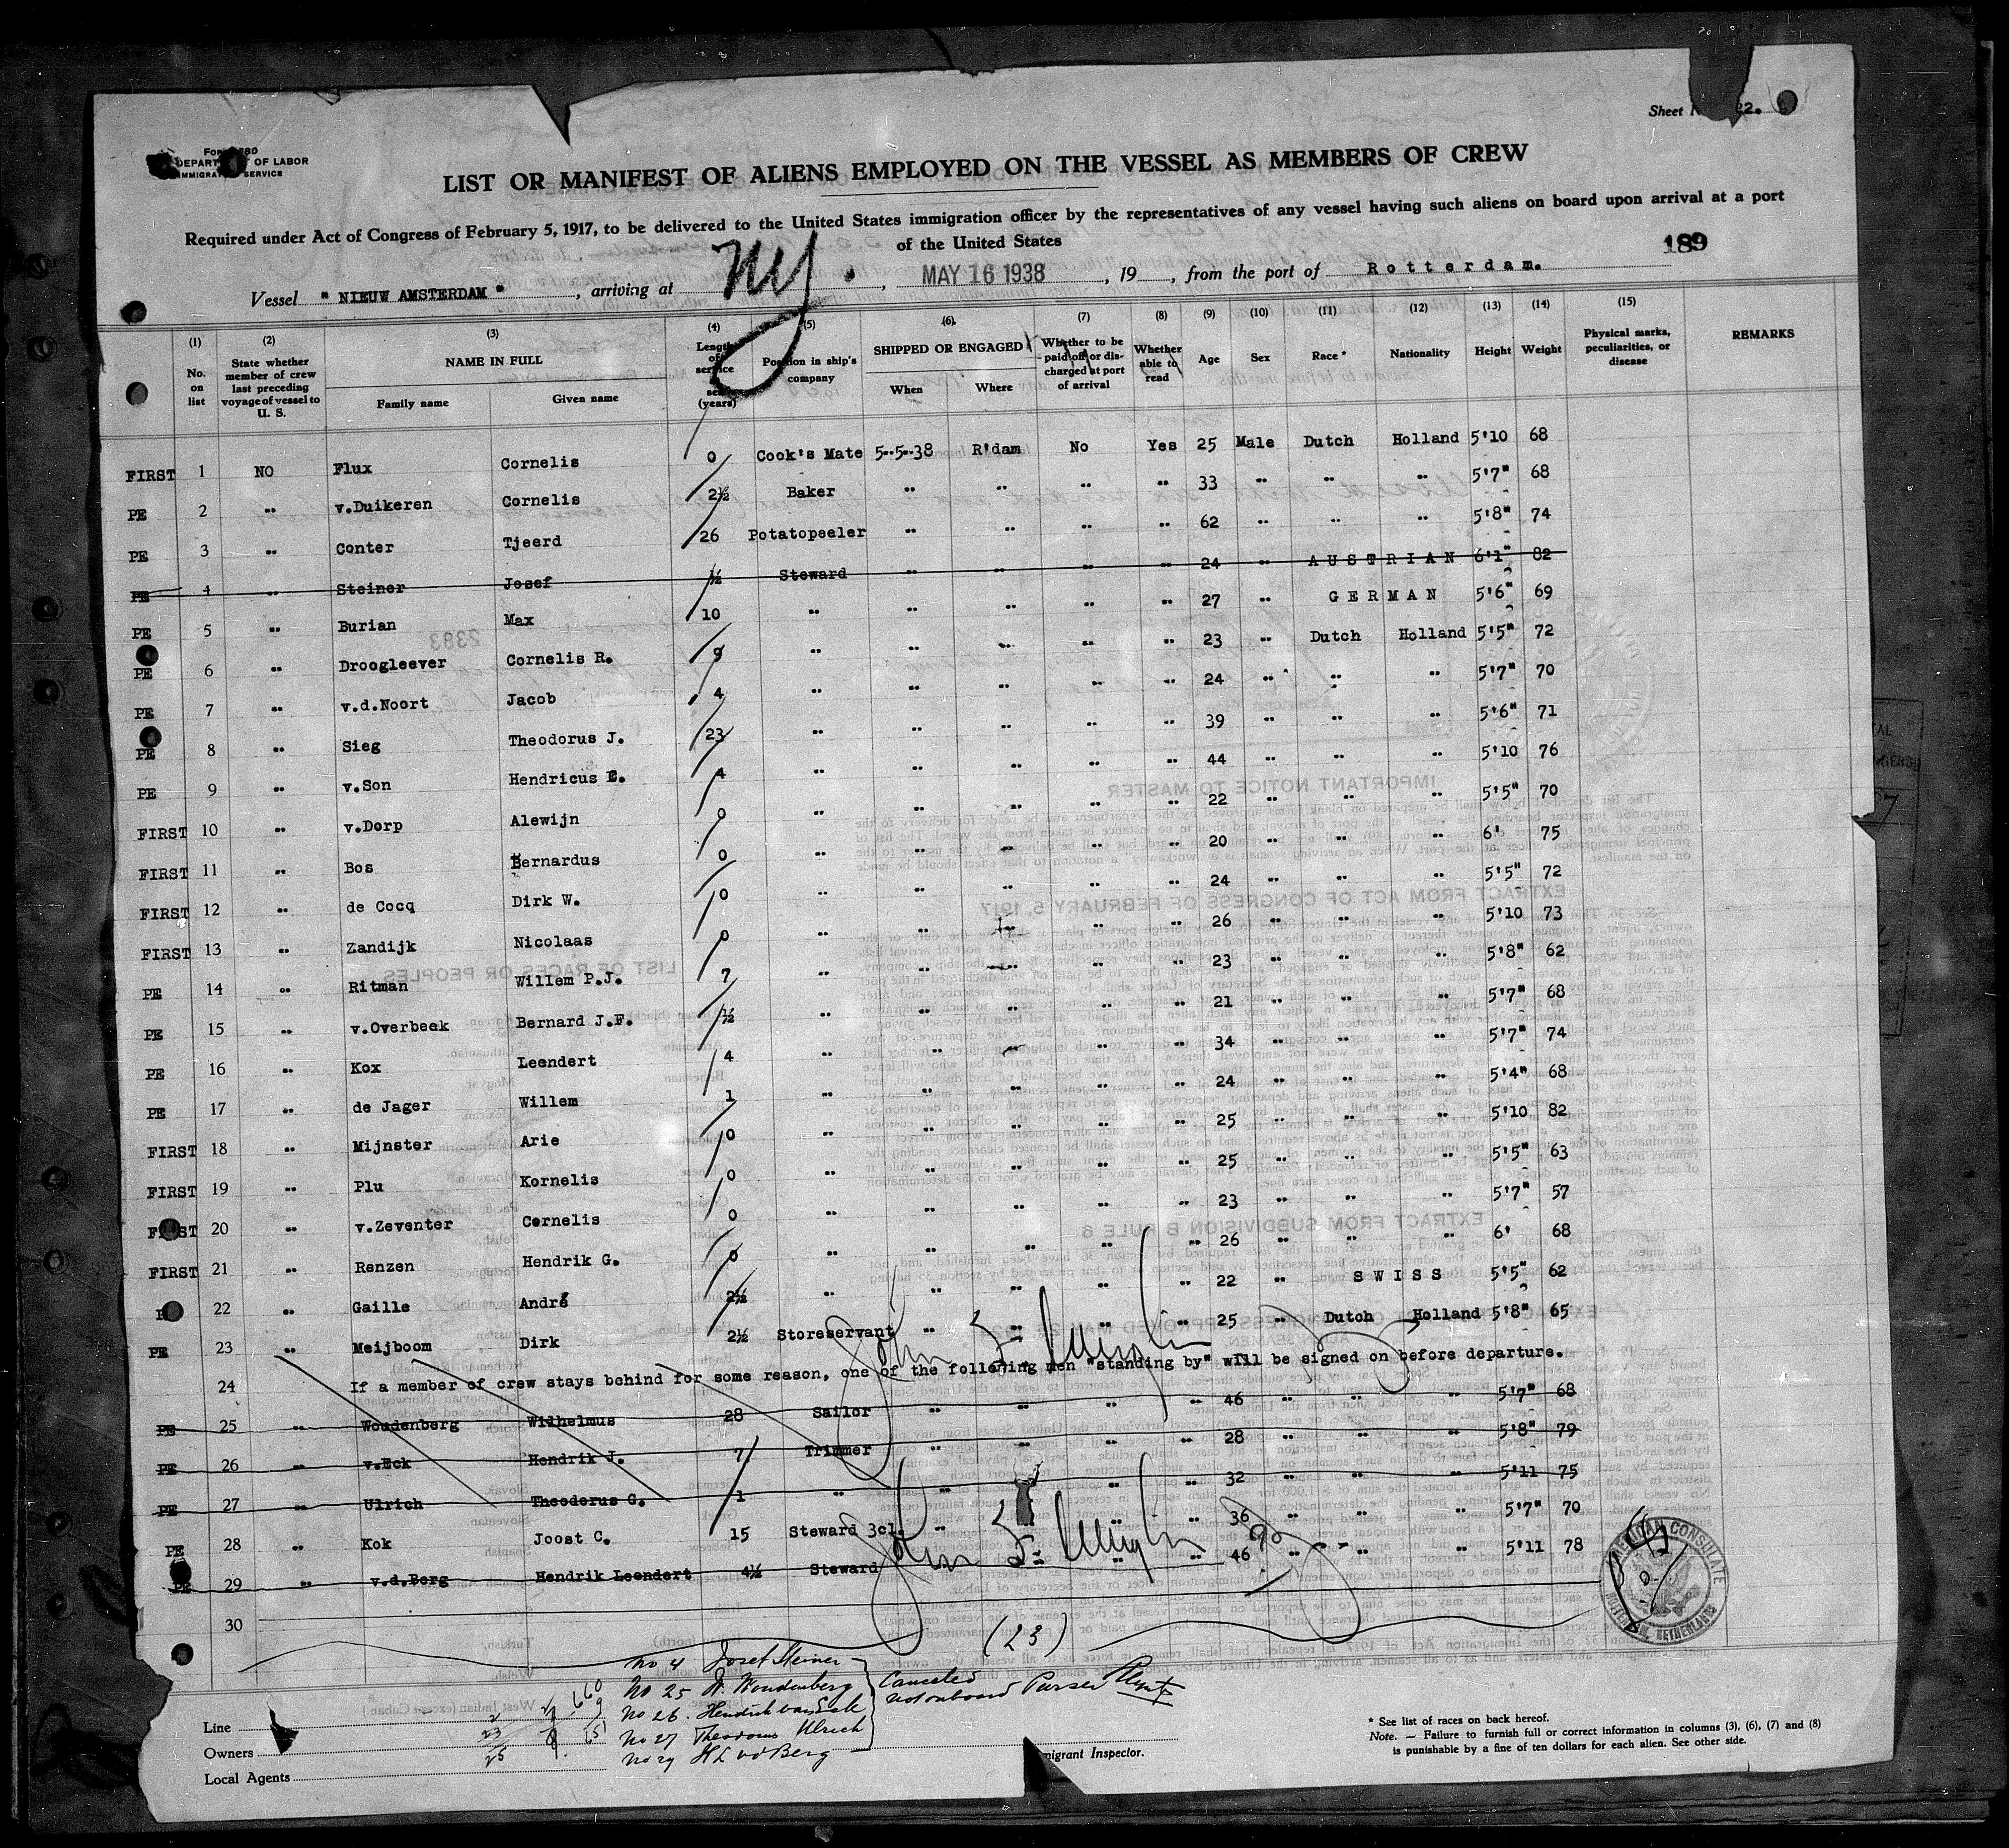 Sheet 22.
DEPART OF LABOR
IMMIGRA SERVICE
LIST OR MANIFEST OF ALIENS EMPLOYED ON THE VESSEL AS MEMBERS OF CREW
Required under Act of Congress of February 5, 1917, to be delivered to the United States immigration officer by the representatives of any vessel having such aliens on board upon arrival at a port
of the United States
189
Vessel " NIEUW AMSTERDAM ", arriving at NY., MAY 16 1938, 19, from the port of Rotterdam.
(1) (2) (3) (4) (5) (6) (7) (8) (9) (10) (11) (12) (13) (14) (15)
No. on list State whether member of crew last preceding voyage of vessel to U. S. NAME IN FULL Family name Given name Length of service at sea (years) Position in ship's company SHIPPED OR ENGAGED When Where Whether to be paid off or discharged at port of arrival Whether able to read Age Sex Race * Nationality Height Weight Physical marks, peculiarities, or disease REMARKS
FIRST 1 NO Flux Cornelis 0 Cook's Mate 5-5-38 R'dam No Yes 25 Male Dutch Holland 5'10 68
PE 2 " v.Duikeren Cornelis 2½ Baker " " " " 33 " " " 5'7" 68
PE 3 " Conter Tjeerd 26 Potatopeeler " " " " 62 " " " 5'8" 74
PE 4 " Steiner Josef ½ Steward " " " " 24 " AUSTRIAN 6'1" 82
PE 5 " Burian Max 10 " " " " " 27 " GERMAN 5'6" 69
PE 6 " Droogleever Cornelis R. 9 " " " " " 23 " Dutch Holland 5'5" 72
PE 7 " v.d.Noort Jacob 4 " " " " " 24 " " " 5'7" 70
PE 8 " Sieg Theodorus J. 23 " " " " " 39 " " " 5'6" 71
PE 9 " v.Son Hendricus E. 4 " " " " " 44 " " " 5'10 76
FIRST 10 " v.Dorp Alewijn 0 " " " " " 22 " " " 5'5" 70
FIRST 11 " Bos Bernardus 0 " " " " " 20 " " " 6' 75
FIRST 12 " de Cocq Dirk W. 0 " " " " " 24 " " " 5'5" 72
FIRST 13 " Zandijk Nicolaas 0 " " " " " 26 " " " 5'10 73
PE 14 " Ritman Willem P.J. 7 " " " " " 23 " " " 5'8" 62
PE 15 " v.Overbeek Bernard J.F. ½ " " " " " 21 " " " 5'7" 68
PE 16 " Kox Leendert 4 " " " " " 34 " " " 5'7" 74
PE 17 " de Jager Willem 1 " " " " " 24 " " " 5'4" 68
FIRST 18 " Mijnster Arie 0 " " " " " 25 " " " 5'10 82
FIRST 19 " Plu Kornelis 0 " " " " " 25 " " " 5'5" 63
FIRST 20 " v.Zeventer Cornelis 0 " " " " " 23 " " " 5'7" 57
FIRST 21 " Renzen Hendrik G. 0 " " " " " 26 " " " 6' 68
22 " Gaille André 2½ " " " " " 22 " SWISS 5'5" 62
PE 23 " Meijboom Dirk 2½ Storeservant " " " " 25 " Dutch Holland 5'8" 65
24 If a member of crew stays behind for some reason, one of the following men "standing by" will be signed on before departure.
PE 25 " Woudenberg Wilhelmus 28 Sailor " " " " 46 " " " 5'7" 68
PE 26 " v.Eck Hendrik J. 7 Trimmer " " " " 28 " " " 5'8" 79
PE 27 " Ulrich Theodorus G. 1 " " " " " 32 " " " 5'11 75
PE 28 " Kok Joost C. 15 Steward 3cl. " " " " 36 " " " 5'7" 70
PE 29 " v.d.Berg Hendrik Leendert 4½ Steward " " " " 46 " " " 5'11 78
30
(23)
AMERICAN CONSULATE
ROTTERDAM, NETHERLANDS
No 4 Josef Steiner
No 25 W. Woudenberg
No 26. Hendrik van Eck
No 27 Theodorus Ulrich
No 29 H L vd Berg
Canceled
not on board Purser
Line
Owners
Local Agents
migrant Inspector.
* See list of races on back hereof.
Note. — Failure to furnish full or correct information in columns (3), (6), (7) and (8)
is punishable by a fine of ten dollars for each alien. See other side.